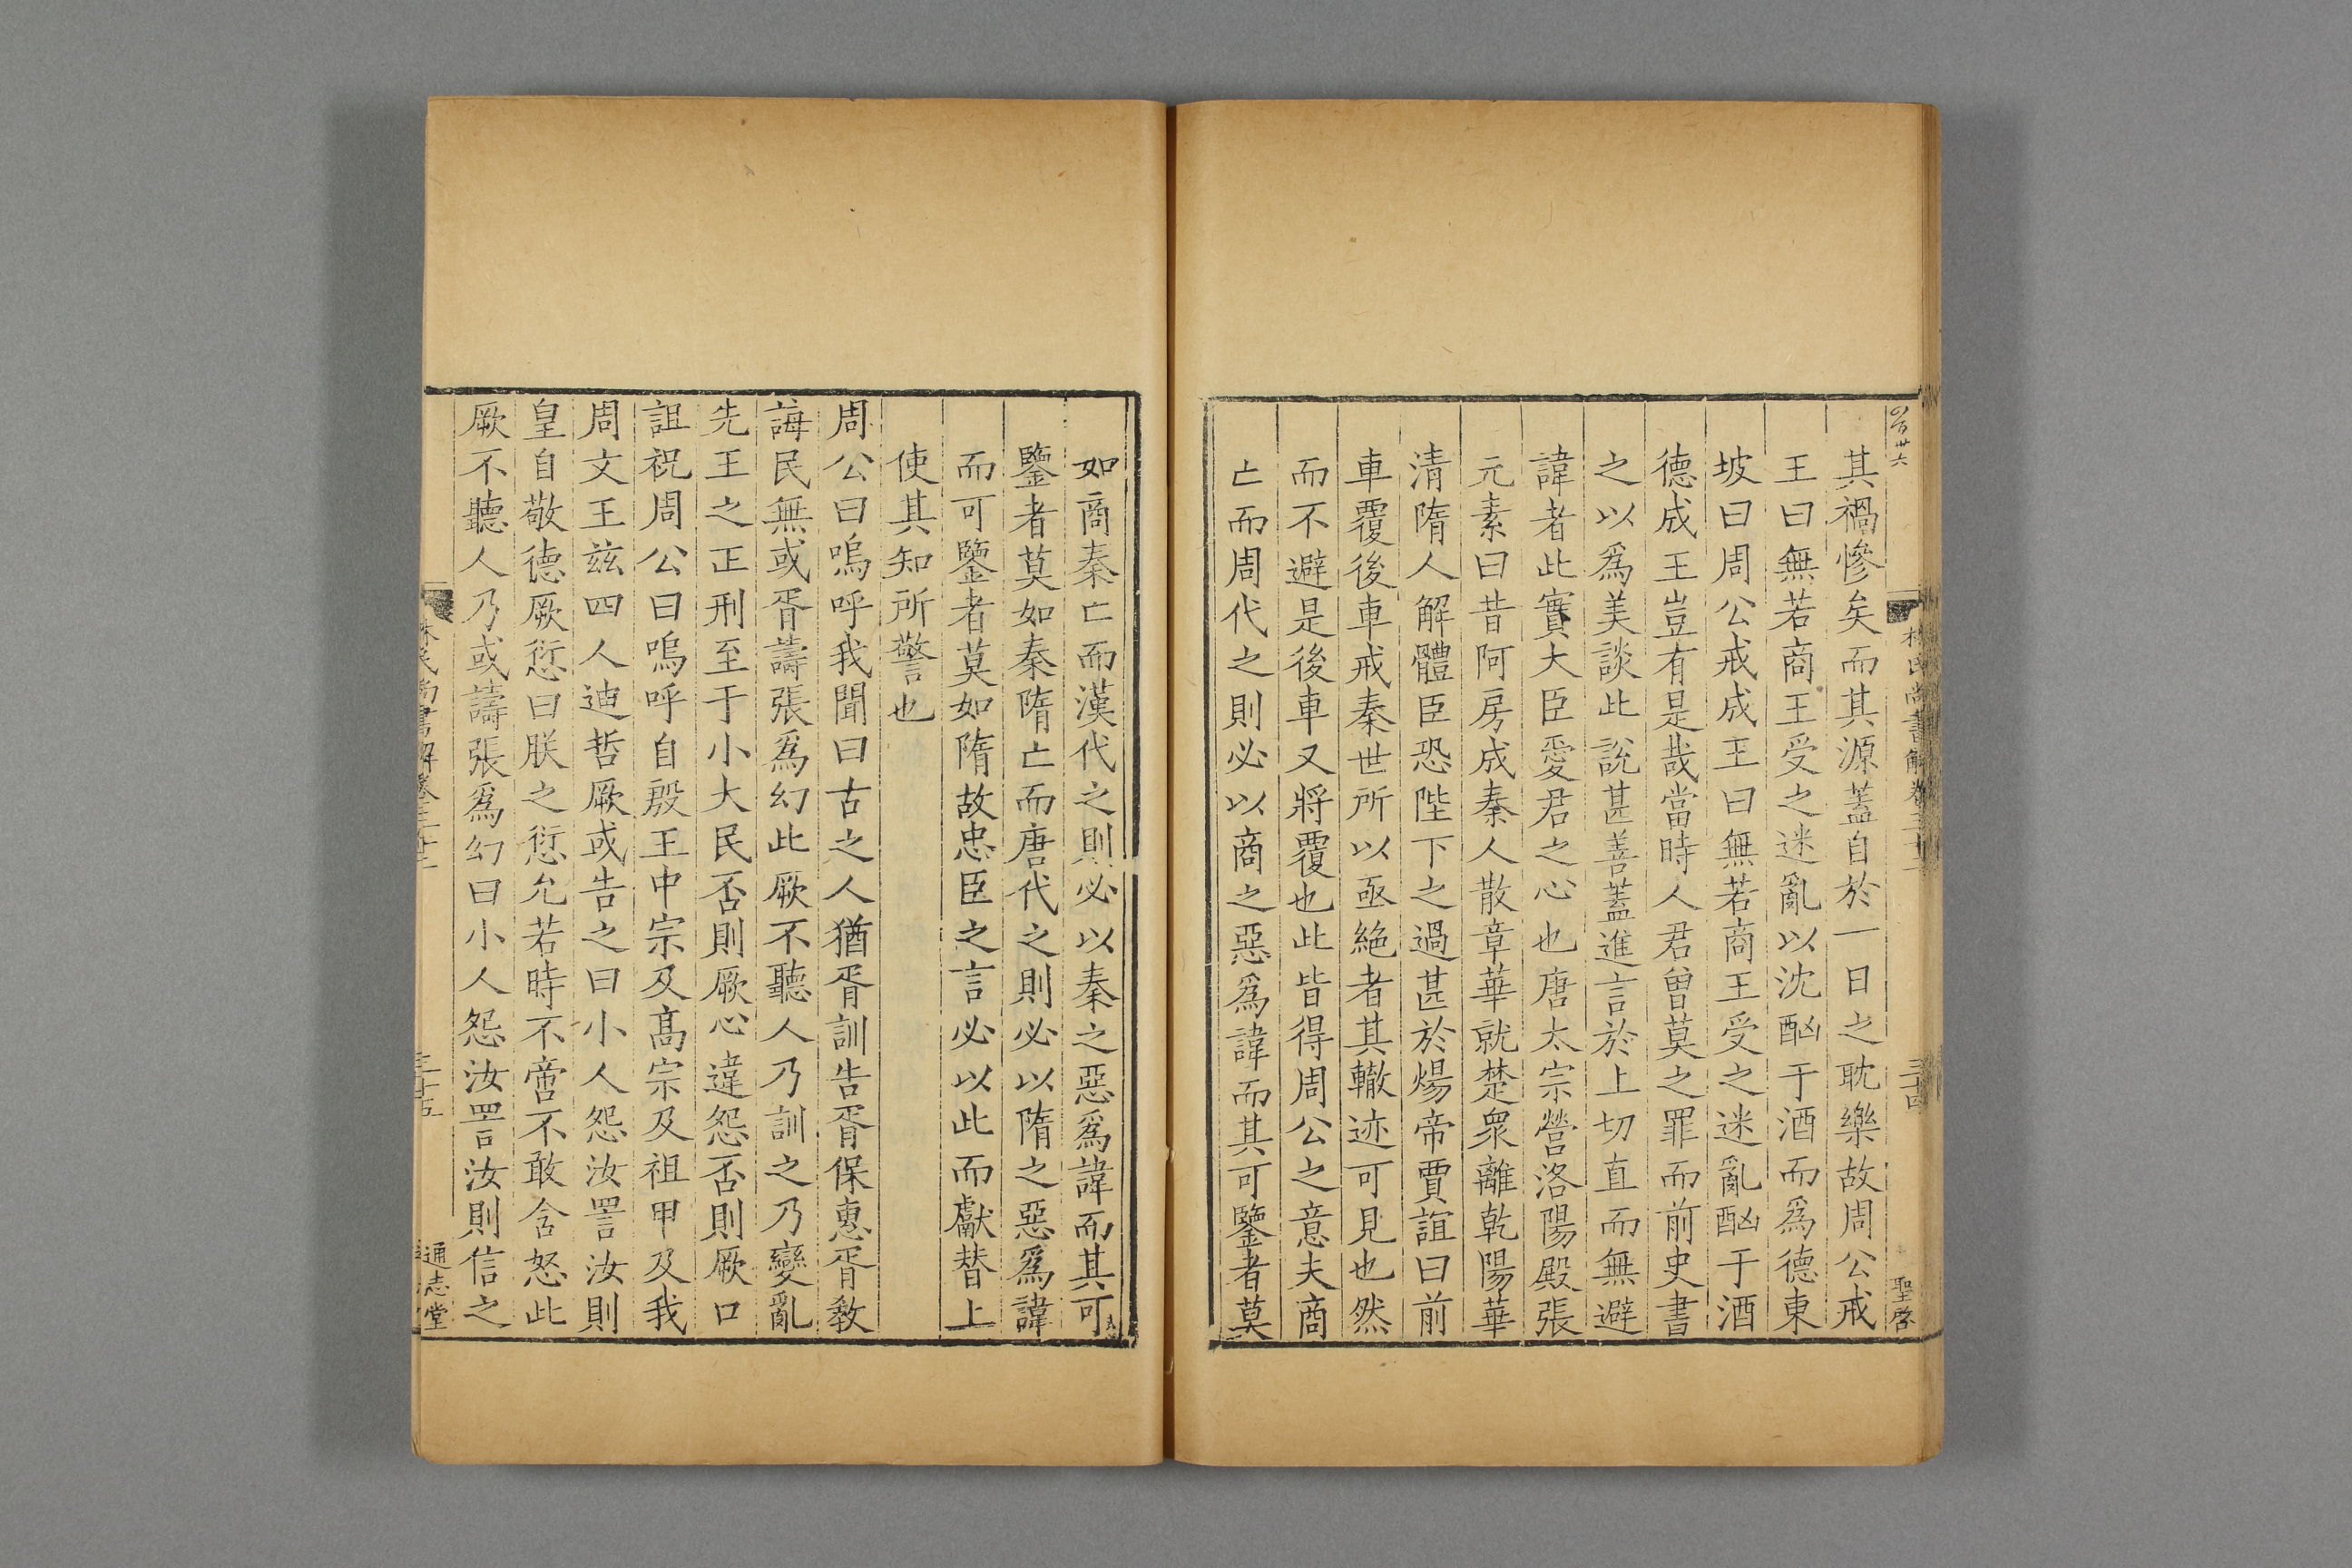 其禍慘矣而其源蓋自於一日之耽樂故周公戒
王曰無若商王受之迷亂以沈酗于酒而爲德東
坡曰周公戒成王曰無若商王受之迷亂酗于酒
德成王豈有是哉當時人君曾莫之罪而前史書
之以爲美談此說甚善蓋進言於上切直而無避
諱者此實大臣愛君之心也唐太宗營洛陽殿張
元素曰昔阿房成秦人散章華就楚衆離乾陽華
清隋人解體臣恐陛下之過甚於煬帝賈誼曰前
車覆後車戒秦世所以亟絕者其轍迹可見也然
而不避是後車又將覆也此皆得周公之意夫商
亡而周代之則必以商之惡爲諱而其可鑒者莫
林氏尚書解卷三十二
三十四
如商秦亡而漢代之則必以秦之惡爲諱而其可
鑒者莫如秦隋亡而唐代之則必以隋之惡爲諱
而可鑒者莫如隋故忠臣之言必以此而獻替上
使其知所警也
周公曰嗚呼我聞曰古之人猶胥訓告胥保惠胥教
誨民無或胥譸張爲幻此厥不聽人乃訓之乃變亂
先王之正刑至于小大民否則厥心違怨否則厥口
詛祝周公曰嗚呼自殷王中宗及高宗及祖甲及我
周文王茲四人迪哲厥或告之曰小人怨汝詈汝則
皇自敬德厥愆曰朕之愆允若時不啻不敢含怒此
厥不聽人乃或譸張爲幻曰小人怨汝詈汝則信之
林氏尚書解卷三十二
三十五
通志堂